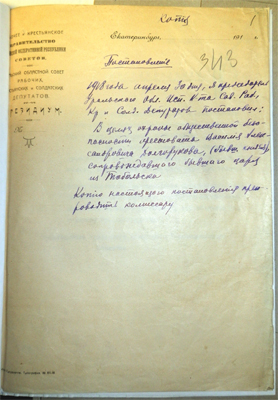 Копія
1
РАБОЧЕЕ И КРЕСТЬЯНСКОЕ
ПРАВИТЕЛЬСТВО
ФЕДЕРАТИВНОЙ РЕСПУБЛИКИ
СОВЕТОВ.
ОБЛАСТНОЙ СОВЕТ
РАБОЧИХ,
КРЕСТЬЯНСКИХ и СОЛДАТСКИХ
ДЕПУТАТОВ.
ПРЕЗИДИУМ.
Екатеринбург. 191
343
Постановление
1918 года апреля 30 дня, я председатель
Уральского Обл. Исп. К-та Сов. Раб.,
Кр и Солд. Депутатов постановил:
В целях охраны общественной безо-
пасности арестовать Василия Алек-
сандровича Долгорукова, (бывш. князь),
сопровождавшего бывшего царя
из Тобольска
Копию настоящего постановления пре-
роводить комиссару